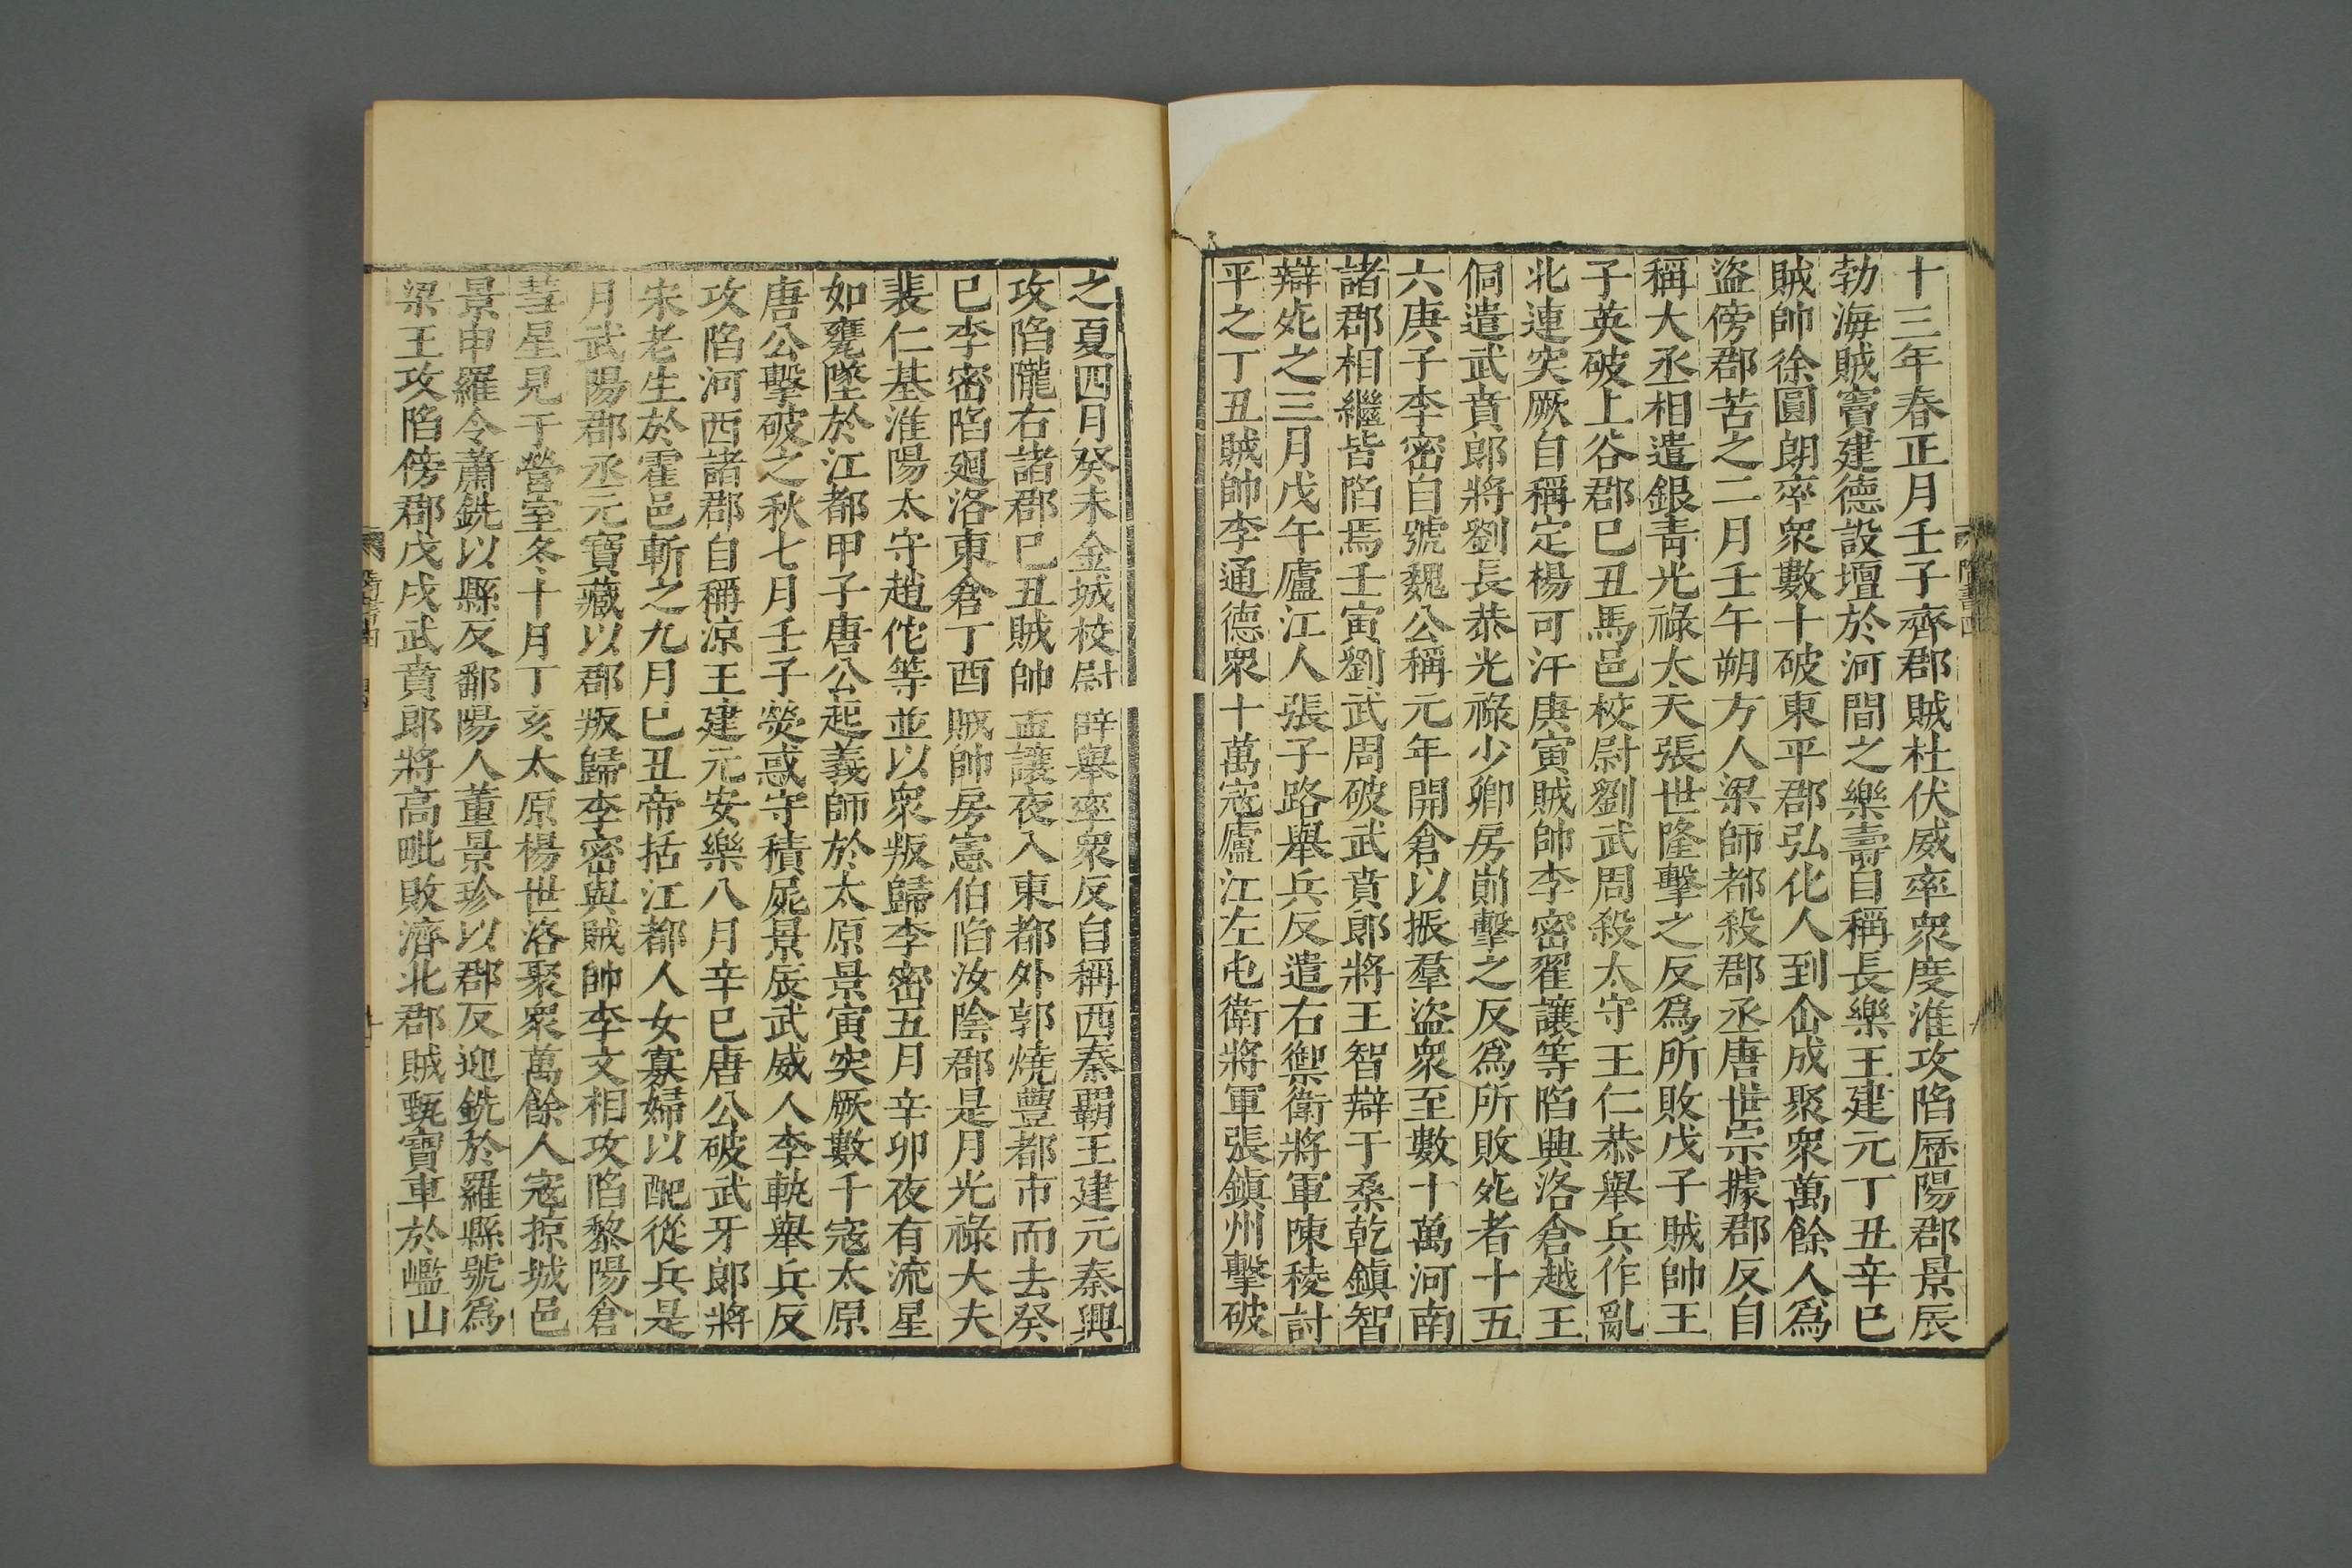 十三年春正月壬子齊郡賊杜伏威率衆度淮攻陷歷陽郡景辰
勃海賊竇建德設壇於河間之樂壽自稱長樂王建元丁丑辛巳
賊帥徐圓朗率衆數十破東平郡弘化人到仚成聚衆萬餘人爲
盜傍郡苦之二月壬午朔方人梁師都殺郡丞唐世宗據郡反自
稱大丞相遣銀青光祿大夫張世隆擊之反爲所敗戊子賊帥王
子英破上谷郡巳丑馬邑校尉劉武周殺太守王仁恭舉兵作亂
北連突厥自稱定楊可汗庚寅賊帥李密翟讓等陷興洛倉越王
侗遣武賁郎將劉長恭光祿少卿房崱擊之反爲所敗死者十五
六庚子李密自號魏公稱元年開倉以振羣盜衆至數十萬河南
諸郡相繼皆陷焉壬寅劉武周破武賁郎將王智辯于桑乾鎮智
辯死之三月戊午廬江人張子路舉兵反遣右禦衛將軍陳稜討
平之丁丑賊帥李通德衆十萬寇廬江左屯衛將軍張鎮州擊破
之夏四月癸未金城校尉薛舉率衆反自稱西秦霸王建元秦興
攻陷隴右諸郡巳丑賊帥孟讓夜入東都外郭燒豐都市而去癸
巳李密陷廻洛東倉丁酉賊帥房憲伯陷汝陰郡是月光祿大夫
裴仁基淮陽太守趙佗等並以衆叛歸李密五月辛卯夜有流星
如甕墜於江都甲子唐公起義師於太原景寅突厥數千寇太原
唐公擊破之秋七月壬子熒惑守積屍景辰武威人李軌舉兵反
攻陷河西諸郡自稱涼王建元安樂八月辛巳唐公破武牙郎將
宋老生於霍邑斬之九月巳丑帝括江都人女寡婦以配從兵是
月武陽郡丞元寶藏以郡叛歸李密與賊帥李文相攻陷黎陽倉
彗星見于營室冬十月丁亥太原楊世洛聚衆萬餘人寇掠城邑
景申羅令蕭銑以縣反鄱陽人董景珍以郡反迎銑於羅縣號爲
梁王攻陷傍郡戊戌武賁郎將高毗敗濟北郡賊甄寶車於㟭山